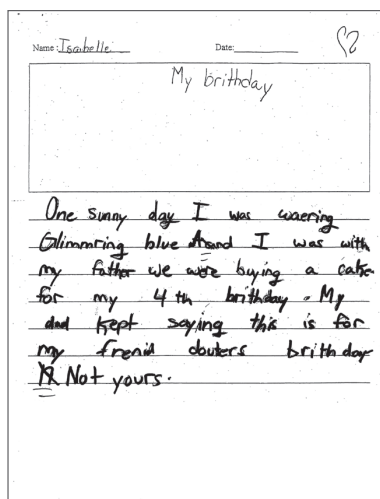 Name: Isabelle Date:
My brithday
One sunny day I was waering
Glimmring blue and I was with
my father we were buying a cake
for my 4 th brithday. My
dad kept saying this is for
my frenid douters brithday
Not yours.